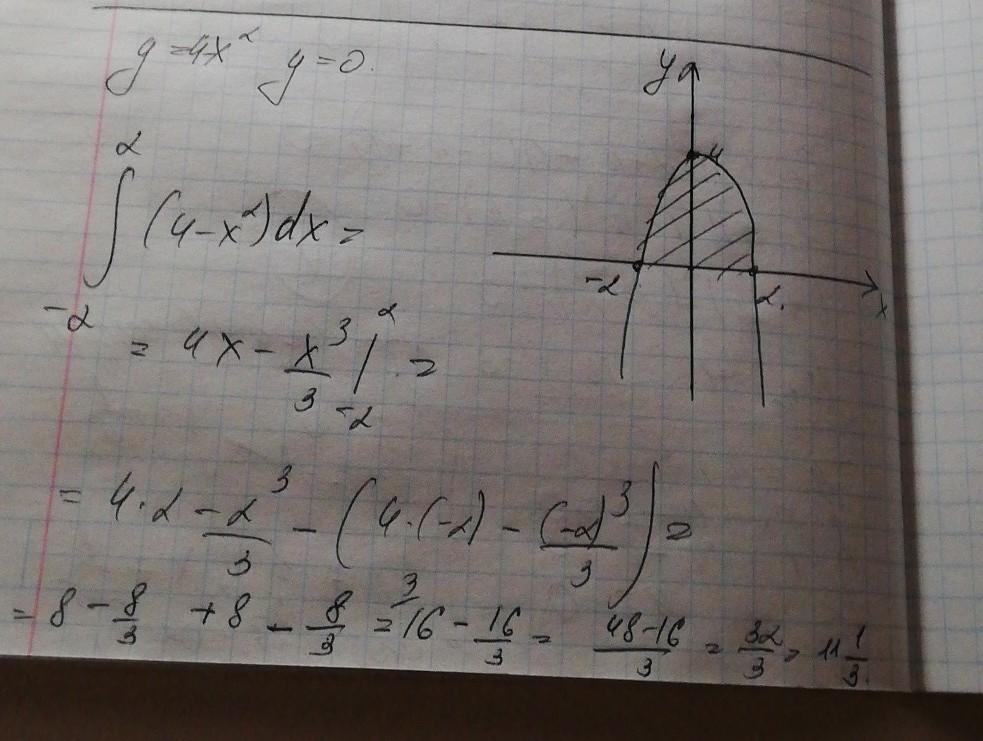 y = 4x² y = 0.
y
4
-2 2.
x
∫₋₂² (4-x²)dx =
= 4x - x³/3 |₋₂² =
= 4·2 - 2³/3 - (4·(-2) - (-2)³/3) =
= 8 - 8/3 + 8 - 8/3 = ³⁄16 - 16/3 = (48-16)/3 = 32/3 = 11 1/3.